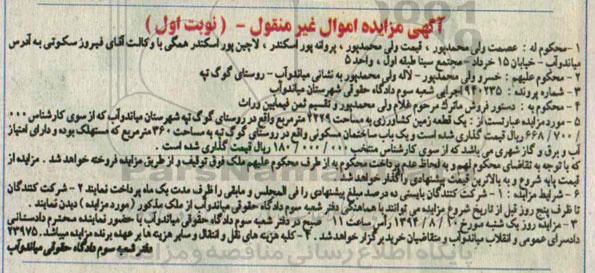 آگهی مزایده اموال غیر منقول - ( نوبت اول )
۱ - محکوم له : عصمت ولی محمدپور ، قیمت ولی محمدپور ، پروانه پور اسکندر ، لاچین پور اسکندر همگی با وکالت آقای فیروز سکوتی به آدرس
میاندوآب - خیابان ۱۵ خرداد - مجتمع سینا طبقه اول ، واحد ۵
۲ - محکوم علیهم : خسرو ولی محمدپور - لاله ولی محمدپور به نشانی میاندوآب - روستای گوگ تپه
۳ - شماره پرونده : ۹۴۰۲۳۵ اجرایی شعبه سوم دادگاه حقوقی شهرستان میاندوآب
۴ - محکوم به : دستور فروش ماترک مرحوم غلام ولی محمدپور و تقسیم ثمن فیمابین وراث
۵ - مورد مزایده عبارتست از : یک قطعه زمین کشاورزی به مساحت ۲۲۲۹ مترمربع واقع در روستای گوگ تپه شهرستان میاندوآب که از سوی کارشناس ۰۰۰
/ ۷۰۰ / ۶۶۸ ریال قیمت گذاری شده است و یک باب ساختمان مسکونی واقع در روستای گوگ تپه به مساحت ۳۶۰ مترمربع که مستهلک بوده و دارای امتیاز
آب و برق و گاز شهری می باشد که از سوی کارشناس منتخب ۰۰۰ / ۰۰۰ / ۱۸۰ ریال قیمت گذاری شده است .
که با توجه به تقاضای محکوم لهم و به لحاظ عدم پرداخت محکوم به از طرف محکوم علیهم ملک فوق توقیف و از طریق مزایده فروخته خواهد شد . مزایده از
قیمت پایه شروع و به بالاترین قیمت پیشنهادی واگذار خواهد شد .
۶ - شرایط مزایده : ۱ - شرکت کنندگان بایستی ده درصد مبلغ پیشنهادی را فی المجلس و مابقی را ظرف مدت یک ماه پرداخت نمایند ۲ - شرکت کنندگان
تا ظرف پنج روز قبل از تاریخ شروع مزایده می توانند با هماهنگی دفتر شعبه سوم دادگاه حقوقی میاندوآب از ملک مذکور ( مورد مزایده ) دیدن نمایند .
۳ - مزایده روز یک شنبه مورخ ۱۳۹۴/۸/۱۰ رأس ساعت ۱۱ صبح در دفتر شعبه سوم دادگاه حقوقی میاندوآب با حضور نماینده محترم دادستانی
دادسرای عمومی و انقلاب میاندوآب و متقاضیان خرید برگزار خواهد شد . ۴ - کلیه هزینه های نقل و انتقال و سایر هزینه ها بر عهده برنده مزایده میباشد . ۲۳۹۷۵
دفتر شعبه سوم دادگاه حقوقی میاندوآب